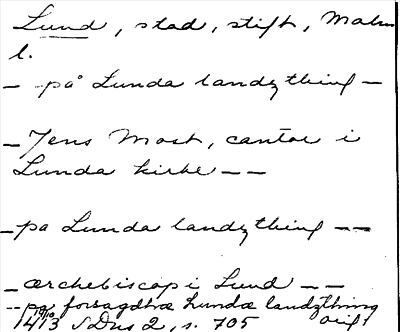 Lund, stad, stift, Malm
l.
— på Lunda landzthing —
— Jens Most, cantor i
Lunda kirke — —
— pa Lunda landzthing — —
— ærchebiscop i Lund — —
-- pa forsagdhæ Lundæ landzthing
1413 SDns 2, s. 705